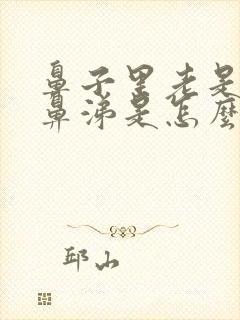 鼻子里老是
鼻涕是怎麼
邱山